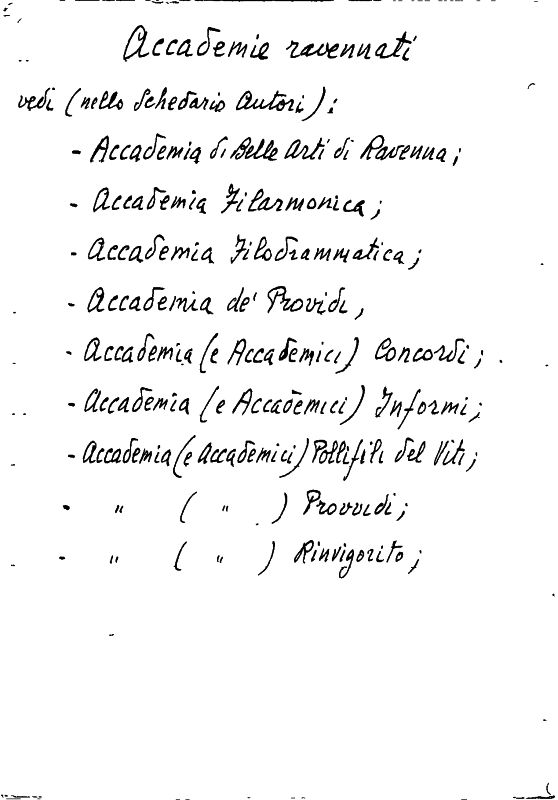 Accademie ravennati
vedi (nello Schedario Autori):
- Accademia di Belle Arti di Ravenna;
- Accademia Filarmonica;
- Accademia Filodrammatica;
- Accademia de' Providi,
- Accademia (e Accademici) Concordi;
- Accademia (e Accademici) Informi;
- Accademia (e Accademici) Pollifili del Viti;
- " ( " ) Provvidi;
- " ( " ) Rinvigorito;